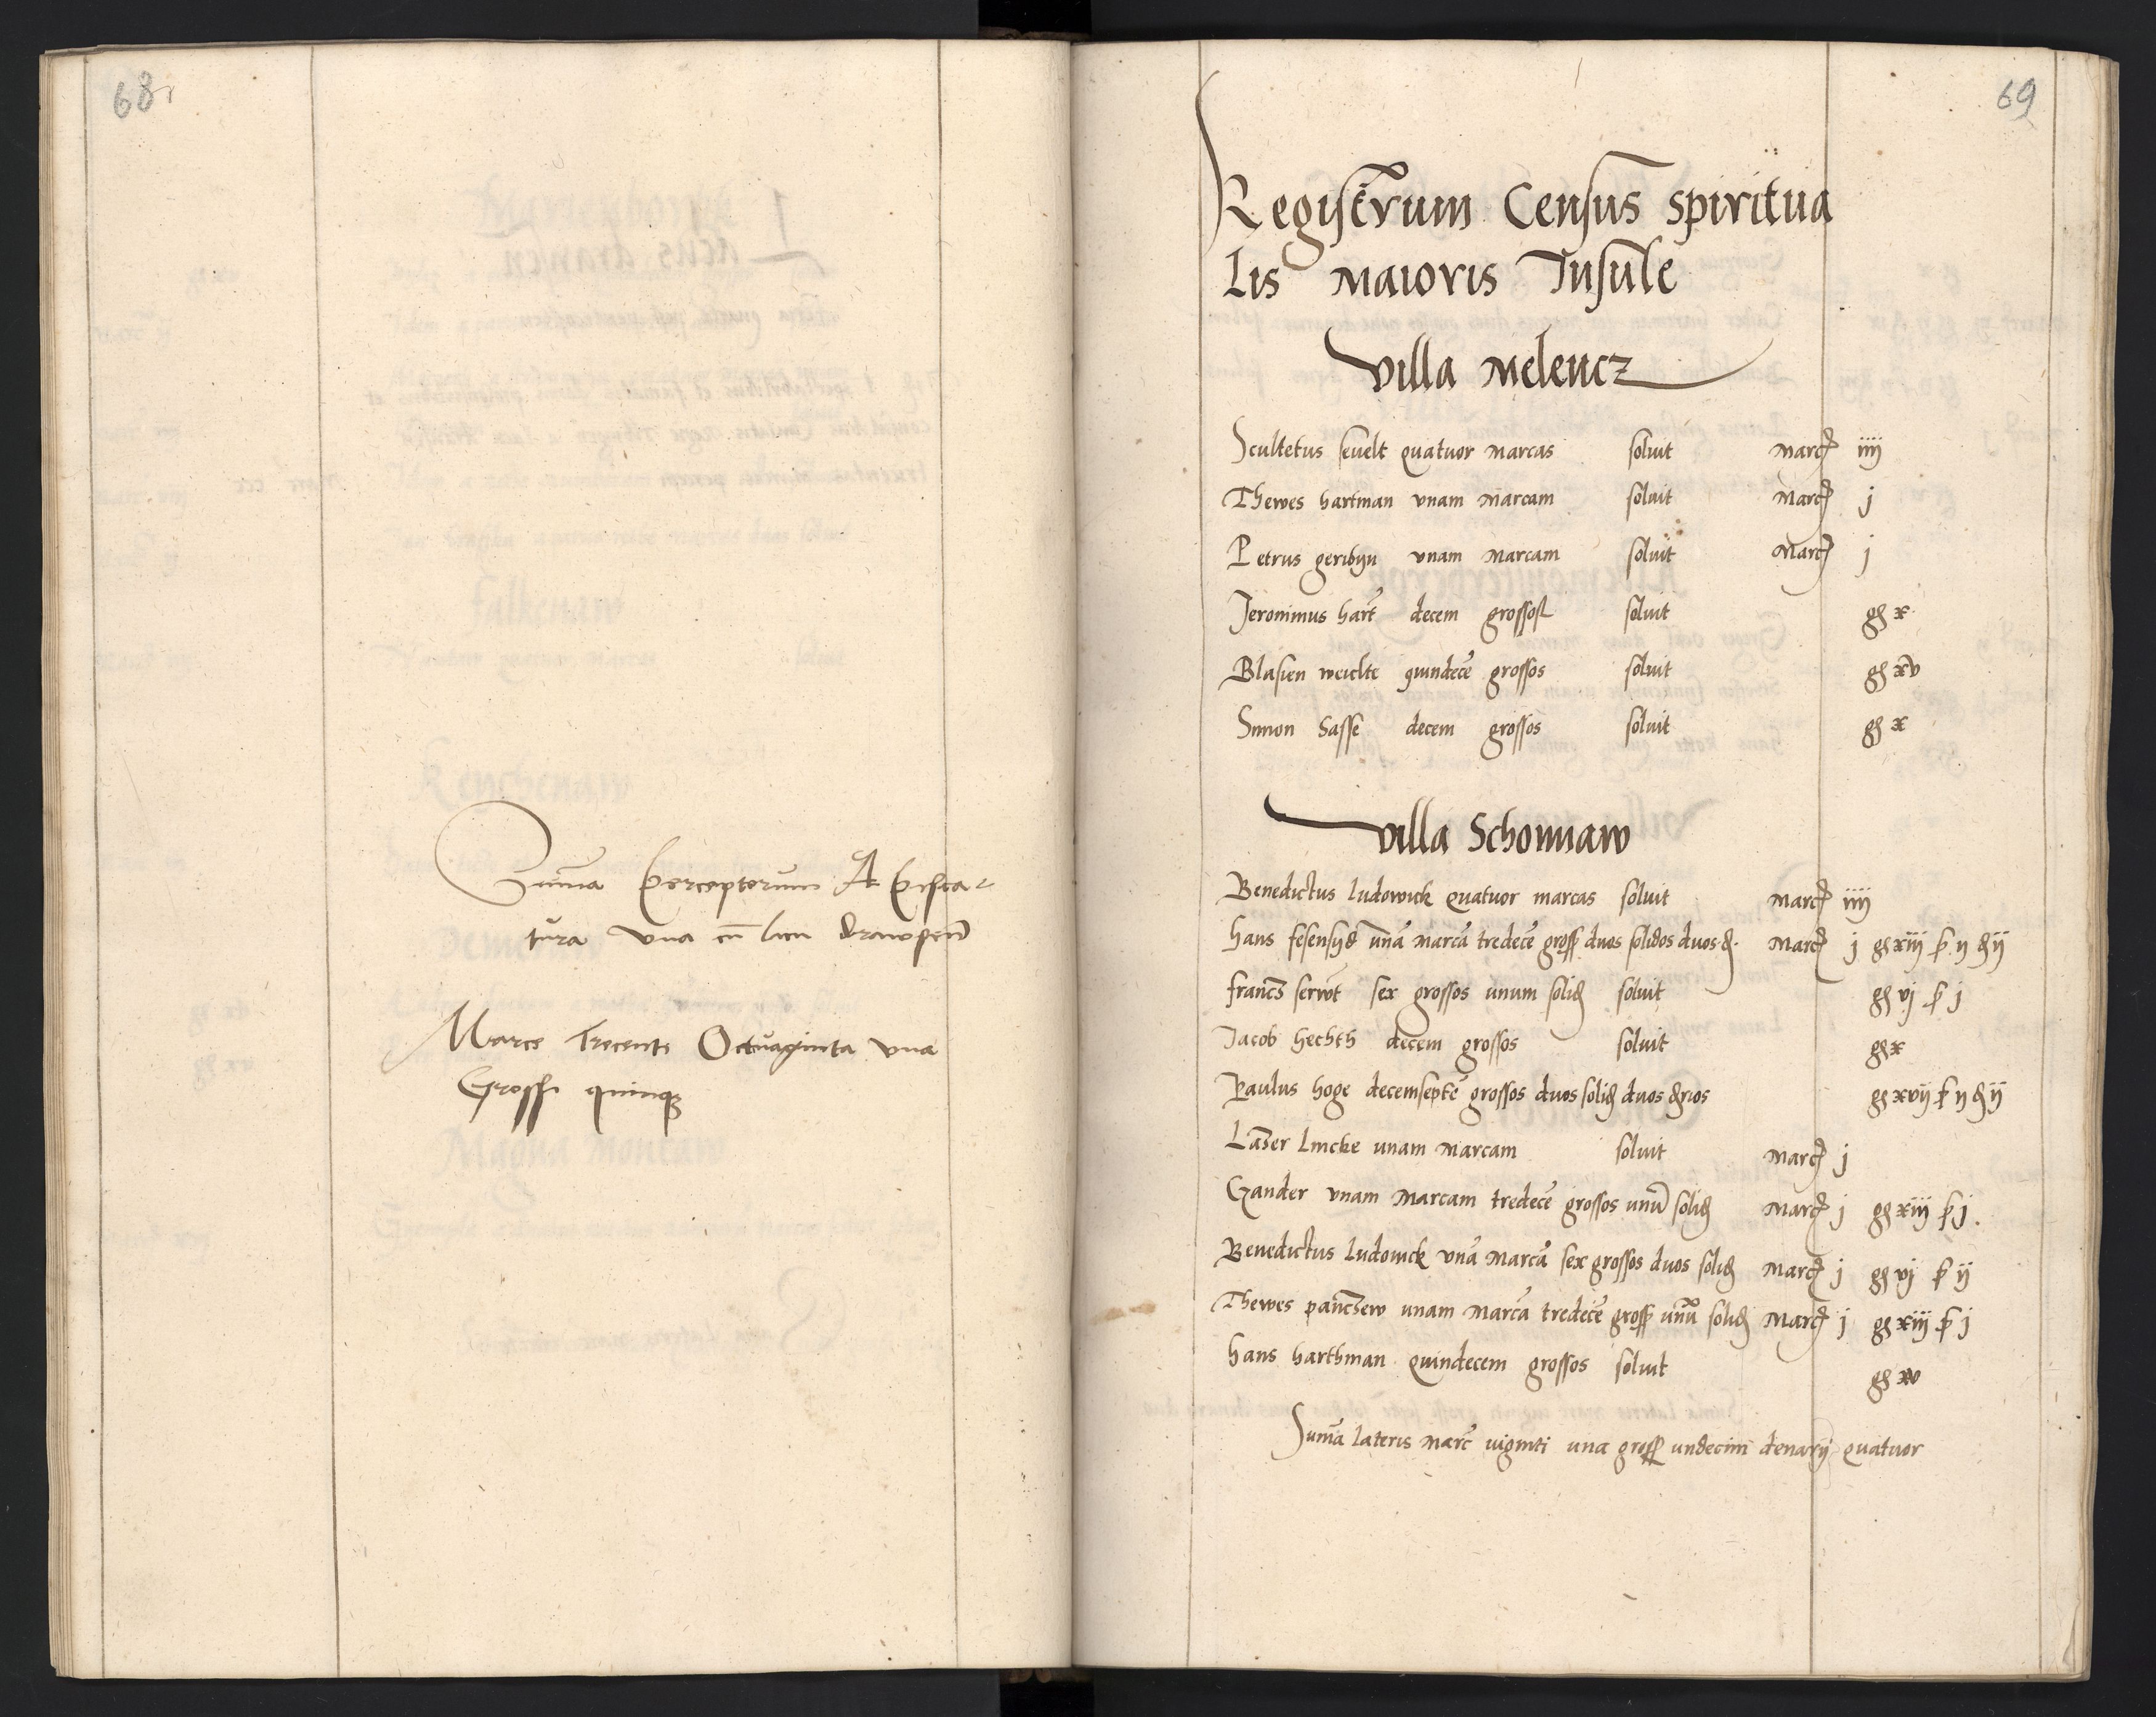 68
Sum̄a perceptorum A pisca-
tura vna cū lacu
Marce Trecente Octuaginta vna
Grossi quinqꝫ
69
Registrum Census spiritua
lis Maioris Insule
villa Melencz
Scultetus sevelt quatuor marcas soluit marcꝭ iiij
Thewes hartman vnam marcam soluit marcꝭ j
Petrus vnam marcam soluit marcꝭ j
Jeronimus hart̄ decem grossos soluit gꝭ x
Blasien weichte quindecē grossos soluit gꝭ xv
Simon Sasse decem grossos soluit gꝭ x
villa Schonnaw
Benedictus ludowick quatuor marcas soluit marcꝭ iiij
hans vnā marcā tredecē grosꝭ duos solidos duos d. marcꝭ j gꝭ xiij ꝭ ij d ij
sex grossos unum solid soluit gꝭ vj ꝭ j
Jacob hechth decem grossos soluit gꝭ x
Paulus hoge decemseptē grossos duos solid duos drios gꝭ xvij ꝭ ij d ij
Laser lincke unam marcam soluit marcꝭ j
Gander vnam marcam tredecē grossos unū solid marcꝭ j gꝭ xiij ꝭ j.
Benedictus ludowick vnā marcā sex grossos duos solid marcꝭ j gꝭ vj ꝭ ij
Thewes unam marcā tredecē grosꝭ unū solid marcꝭ j gꝭ xiij ꝭ j
hans harthman quindecem grossos soluit gꝭ xv
Sum̄a lateris marc̄ viginti una grosꝭ undecim denarij quatuor